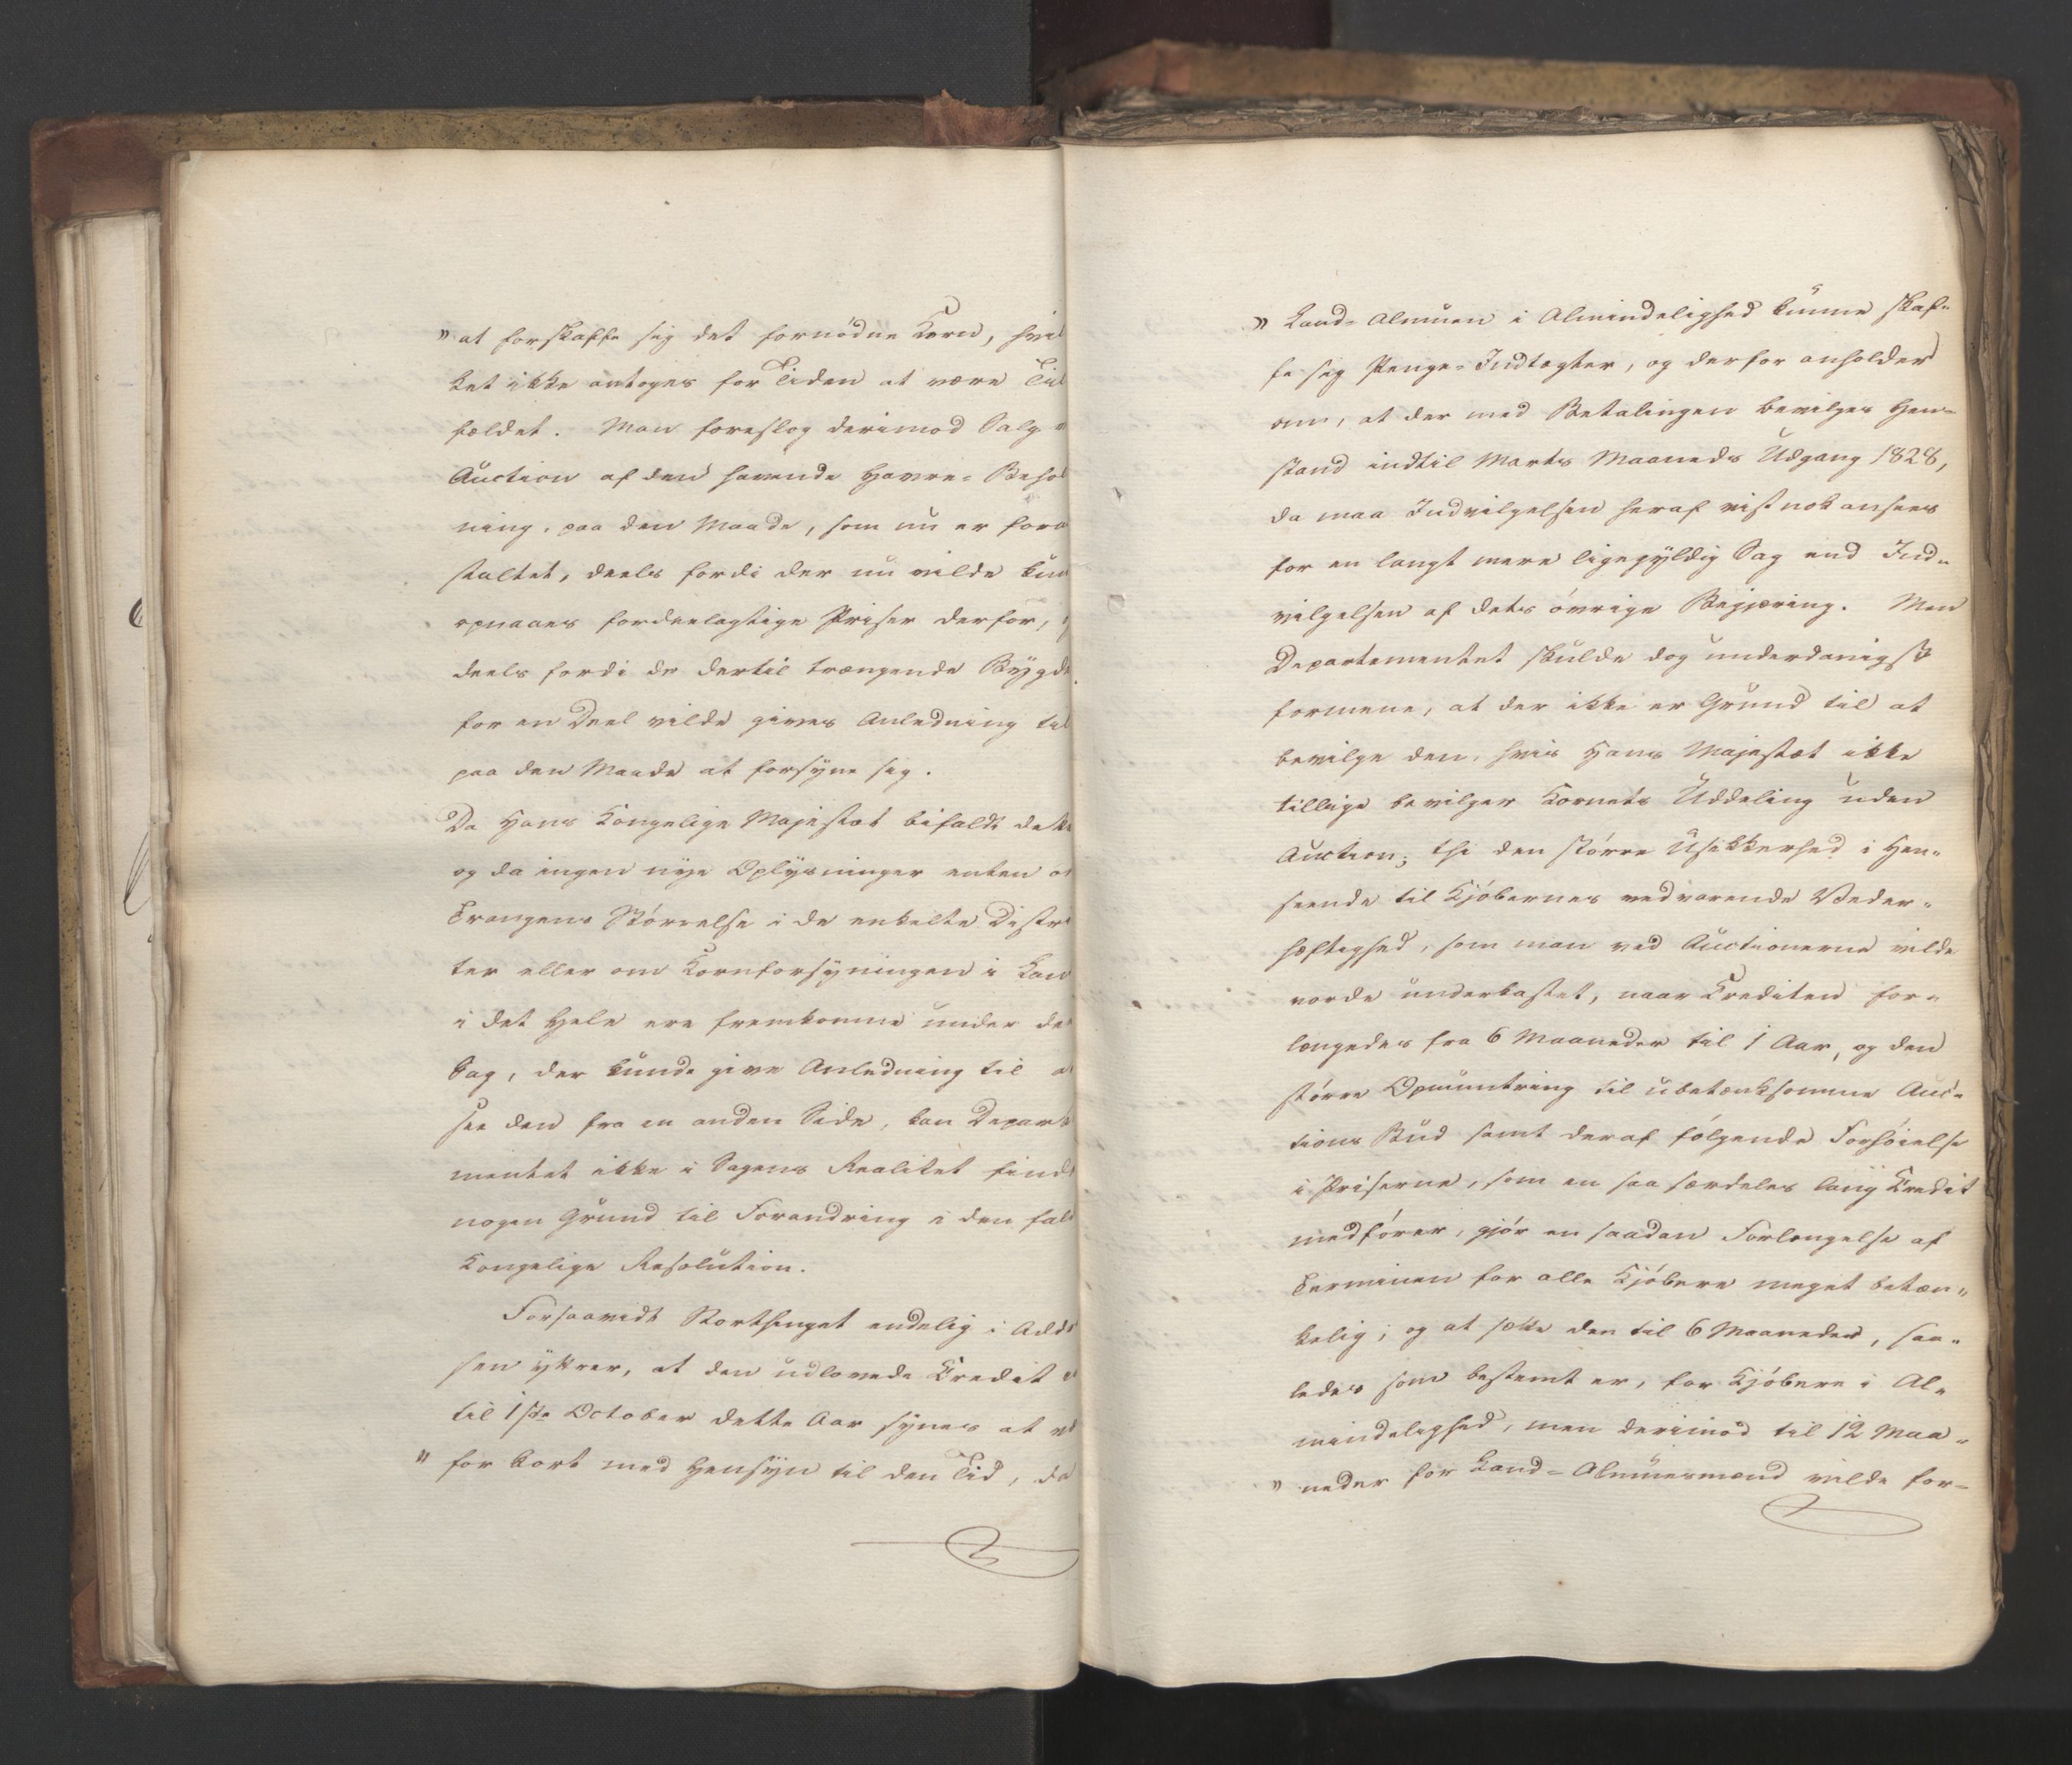 " at forskaffe sig det fornödne Korn, hvil
ket ikke antoges for Tiden at være Til
fældet. Man foreslog derimod Salg v
Auction af den havende Havre-Behol
ning, paa den Maade, som nu er foran
staltet, deels fordi der nu vilde kun
opnaaes fordeelagtige Priser derfor,
deels fordi de dertil trængende Bÿgde
for en Deel vilde gives Anledning til
paa den Maade at forsÿne sig.
Da Hans Kongelige Majestæt bifaldt dette
og da ingen nÿe Oplÿsninger enten o
Trangens Störrelse i de enkelte Distri
ter eller om Kornforsÿningen i Lan
i det Hele ere fremkomne under de
Sag, der kunde give Anledning til a
see den fra en anden Side, kan Depart
mentet ikke i Sagens Realitet finde
nogen Grund til Forandring i den fald
Kongelige Resolution.
Forsaavidt Storthinget endelig i Addr
sen ÿttrer, at den udlovede Credit
til 1ste October dette Aar sÿnes at v
" for kort med Hensÿn til den Tid, da
" Land-Almuen i Almindelighed kunne skaf-
fe sig Penge-Indtægter, og derfor anholder
om, at der med Betalingen bevilges Hen-
stand indtil Marts Maaneds Udgang 1828,
da maa Indvilgelsen heraf vist nok ansees
for en langt mere ligegÿldig Sag end Ind-
vilgelsen af dets övrige Begjæring. Men
Departementet skulde dog underdanigst
formene, at der ikke er Grund til at
bevilge den, hvis Hans Majestæt ikke
tillige bevilger Kornets Uddeling uden
Auction; thi den större Usikkerhed i Hen-
seende til Kjöbernes vedvarende Veder-
hæftighed, som man ved Auctionerne vilde
vorde underkastet, naar Crediten for-
længedes fra 6 Maaneder til 1 Aar, og den
större Opmuntring til ubetænksomme Auc-
tions Bud samt deraf fölgende Forhöielse
i Priserne, som en saa særdeles lang Credit
medförer, gjör en saadan Forlængelse af
Terminen for alle Kjöbere meget betæn-
kelig; og at sætte den til 6 Maaneder, saa-
ledes som bestemt er, for Kjöbere i Al-
mindelighed, men derimod til 12 Maa-
" neder for Land-Almuesmænd vilde for-